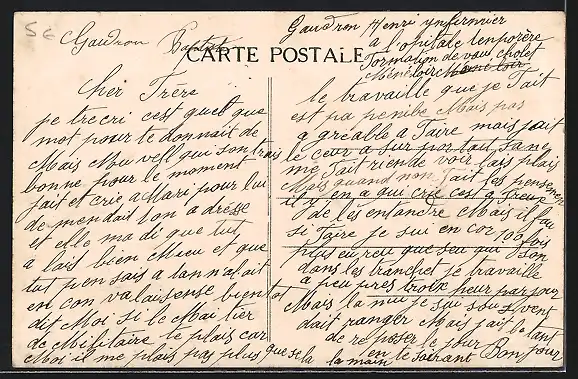 56
Gaudron Baptiste
Gaudron Henri ynfirmier
a l'opitale temporère
formation de vaux cholet
Méneloire
CARTE POSTALE
Cher Frère
je tecri cest quelque
mot pour te donnait de
Mais Nouvell qui son trais
bonne pour le moment
jait et crie a Mari pour lui
de mendait ton adresse
et elle ma di que tut
a lais bien Mieu et que
tut pensais a tannalait
en con valausense bientot
dit Moi si le Mai tier
de Militaire te plais car
Moi il me plais pas plus que se la
le travaille que je Fait
est pa penibe Mais pas
a gréable a Faire mais jait
le ceur a sur por tout sa ne
me Fait rien de voir lais plais
Mais quand non Fait les pensemen
il y en a qui crie ces a Freux
de les entandre Mais il fau
si Faire je sui en cor 100 fois
plus eu reu que seu qui son
dans les tranchet je travaille
a peu pres troix heur par jour
Mais la nui je sui sou vent
dait ranger Mais jait le tant
de reposer le jour
en te soirant Bonjour
la main